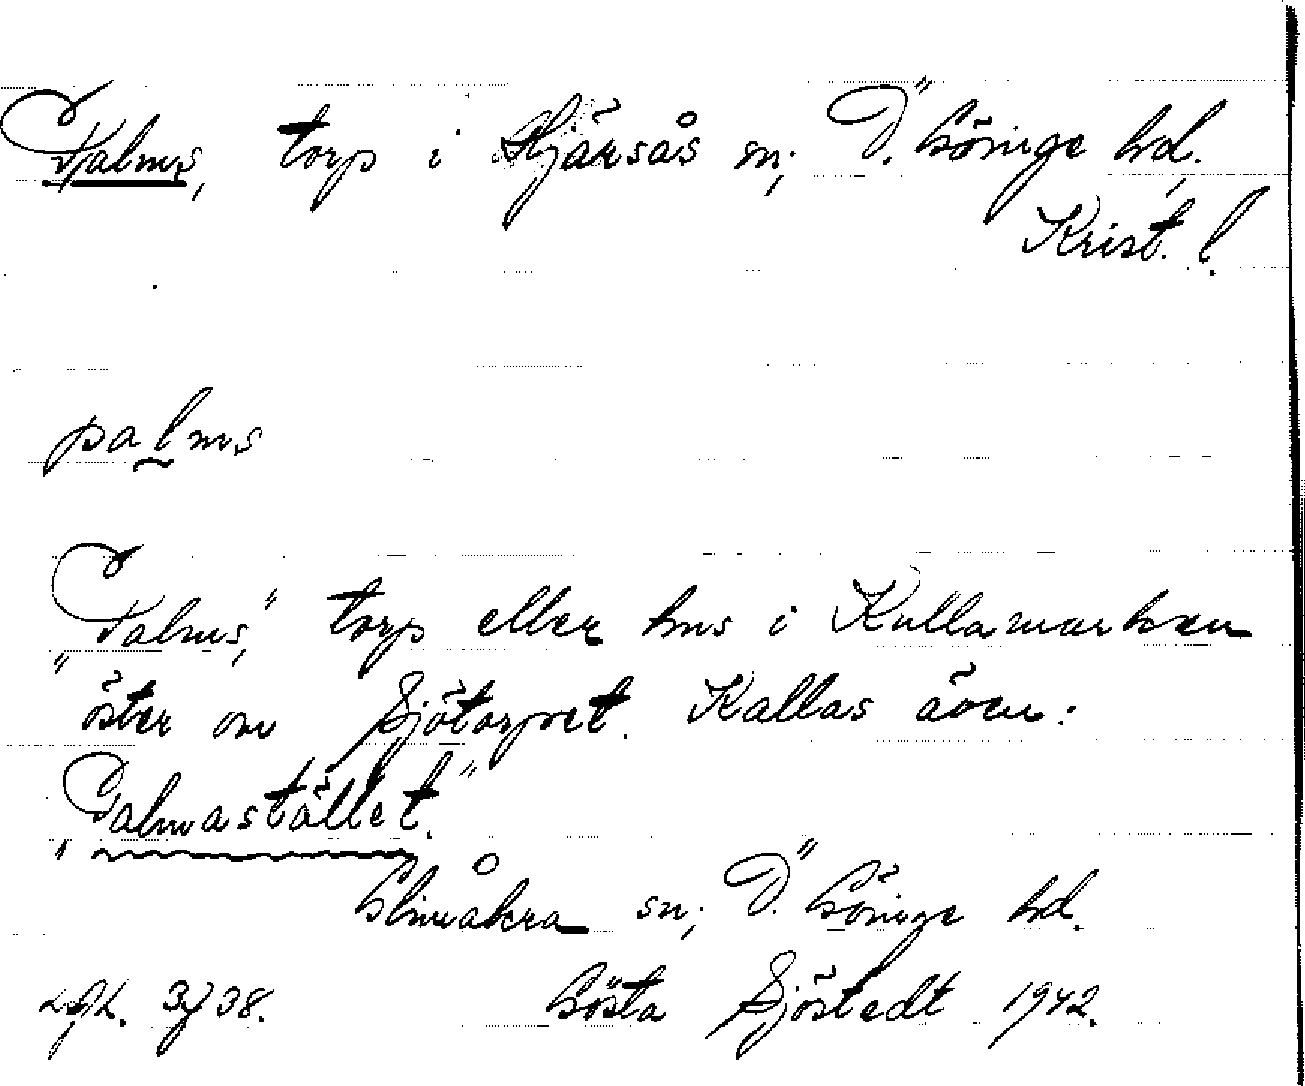 Palms, torp i Hjärsås sn, Ö. Göinge hd,
Krist. l.
palms
"Palms," torp eller hus i Kullamarken
öster om Sjötorpet. Kallas även:
"Palmastället."
Glimåkra sn, Ö. Göinge hd.
38.
Gösta Sjöstedt 1942.